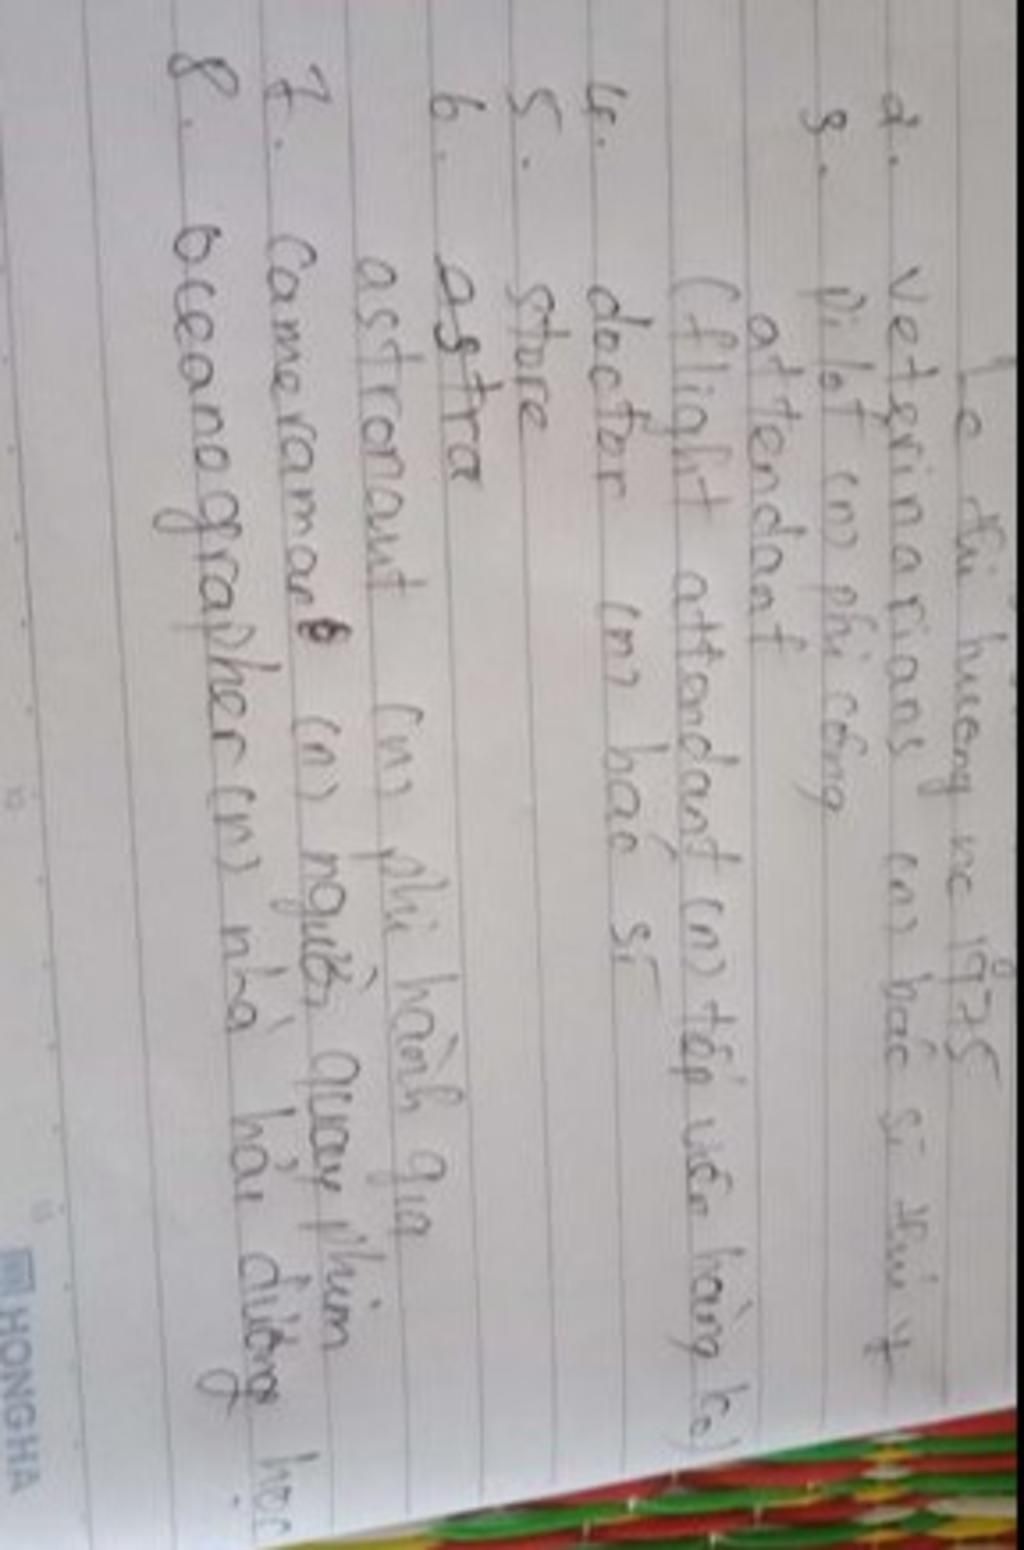 Lê thị hương nc 1975
2. veterinarians (n) bác sĩ thú y
3. pilot (n) phi công
attendant
(flight attendant (n) tiếp viên hàng ko)
4. doctor (n) bác sĩ
5. store
6. astra
astronaut (n) phi hành gia
7. Cameraman (n) người quay phim
8. oceanographer (n) nhà hải dương học.
HONGHA